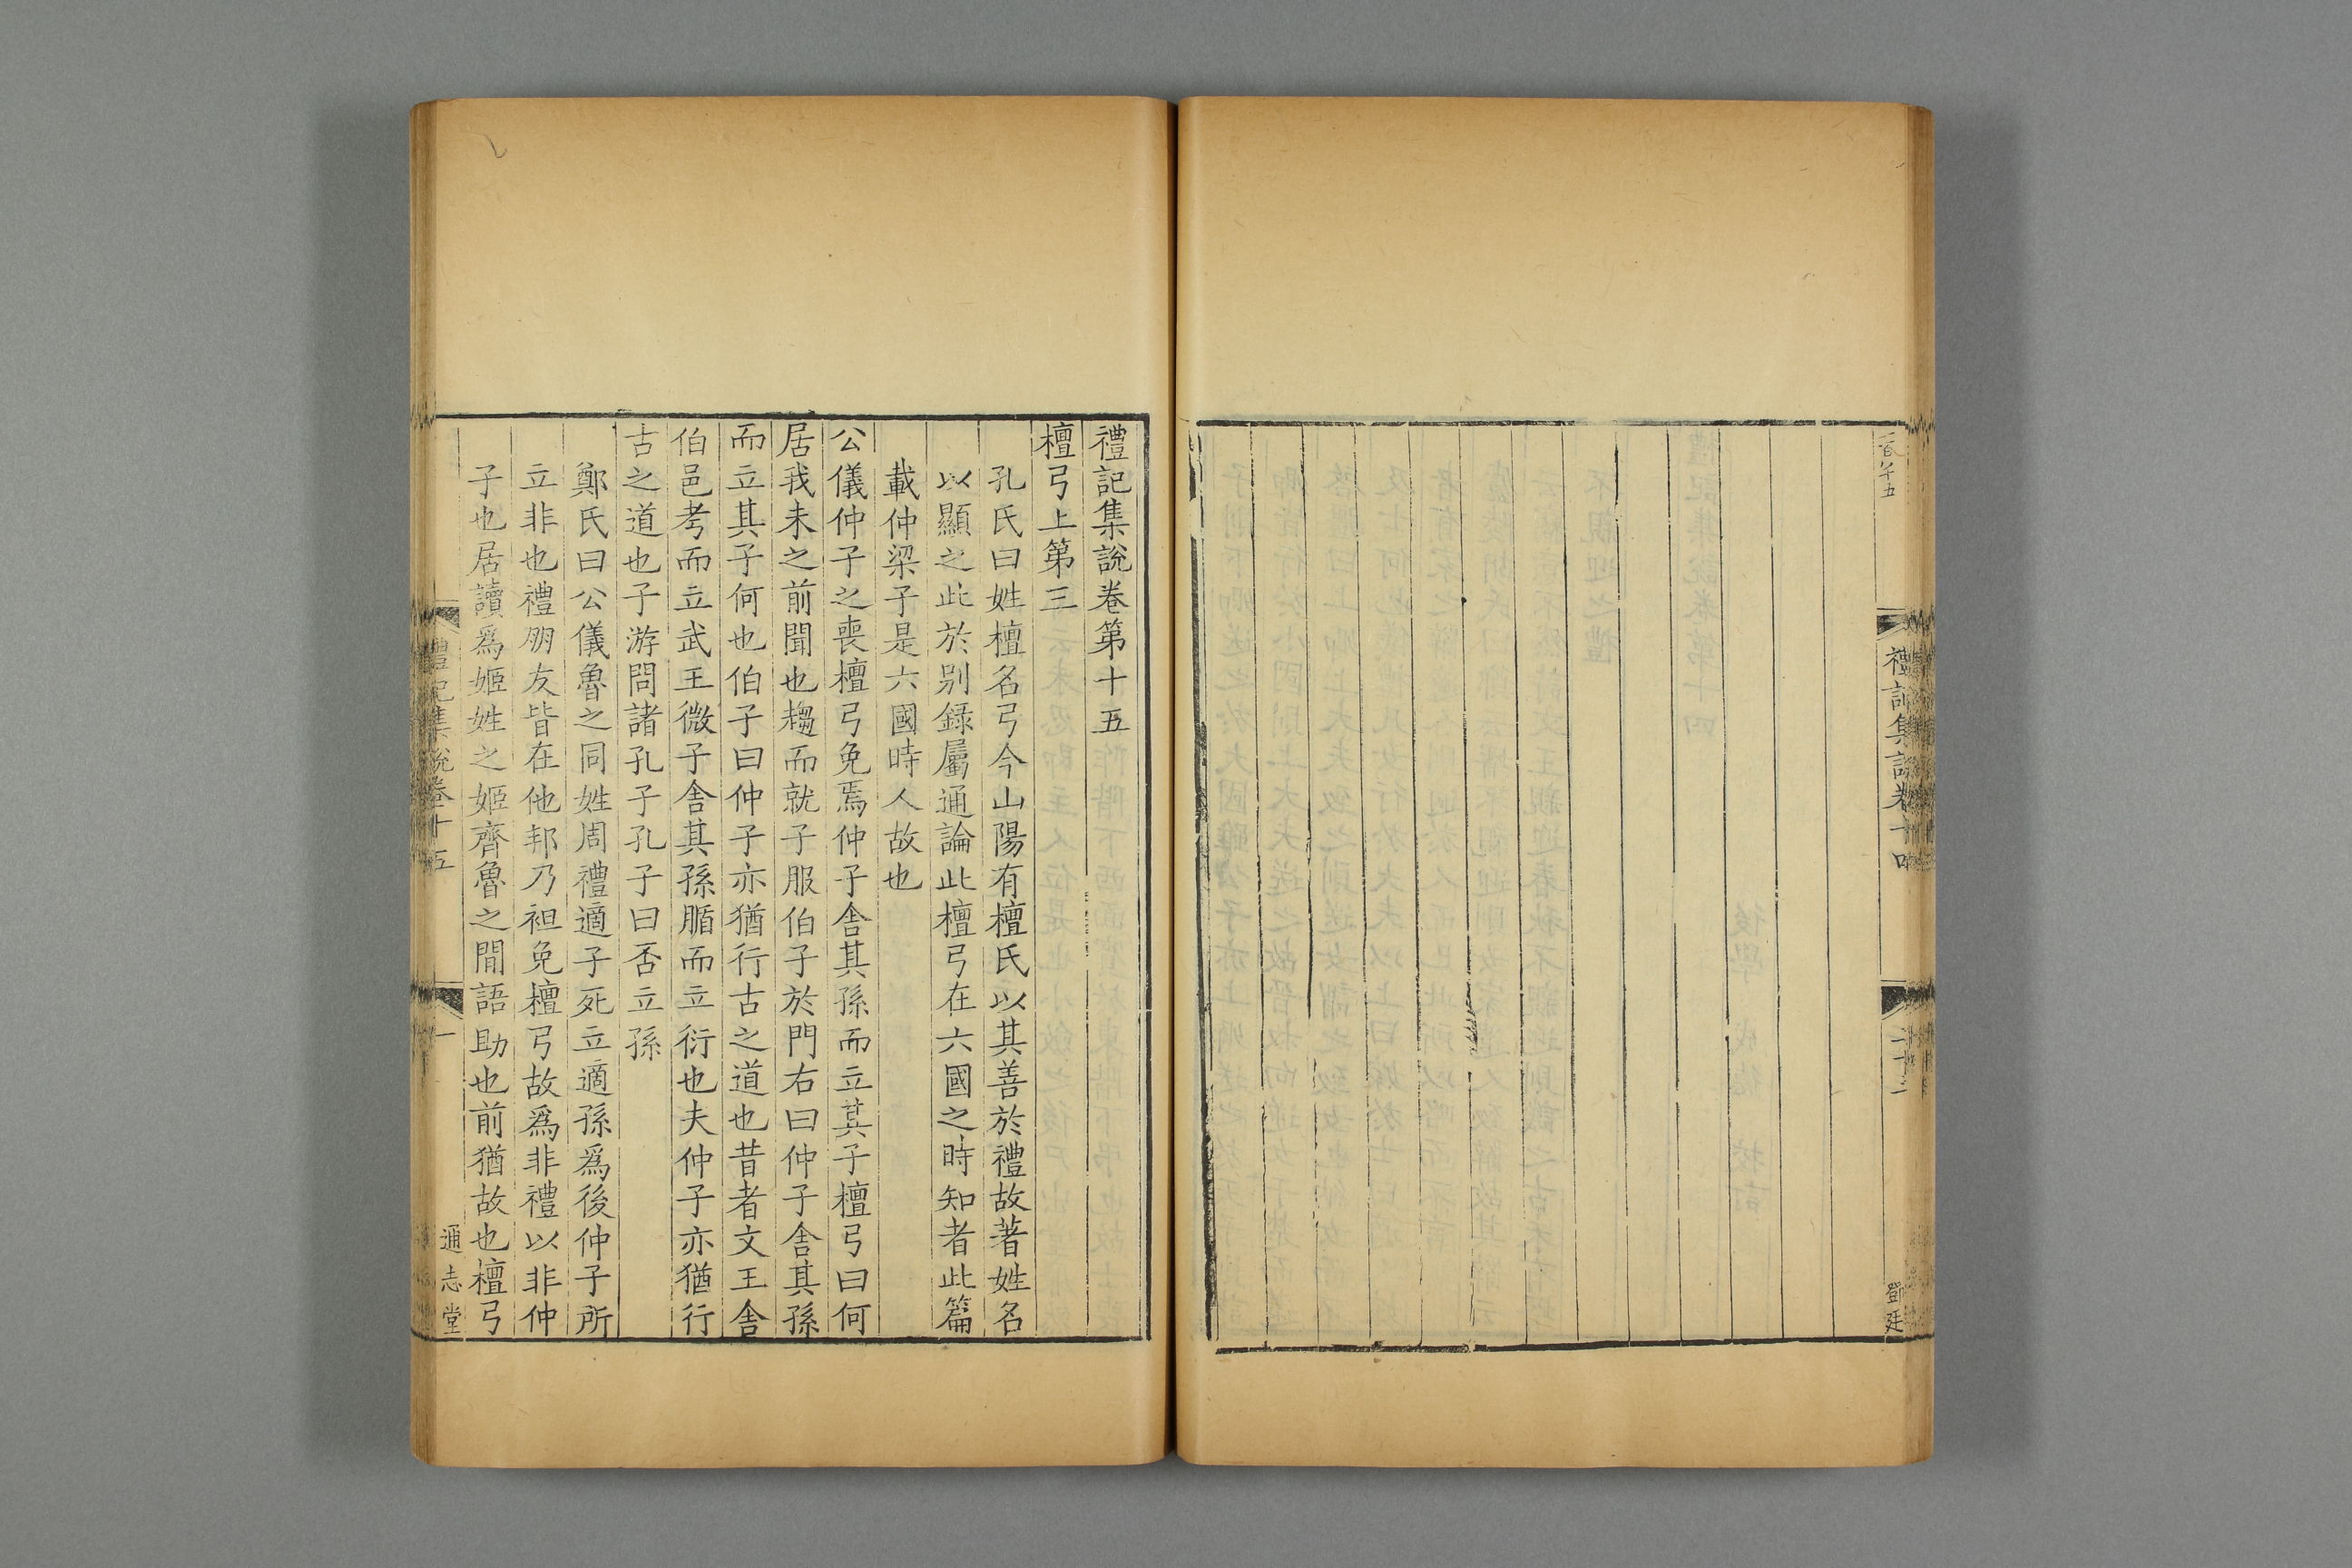 禮記集說卷十四
鄧廷
禮記集說卷第十五
檀弓上第三
孔氏曰姓檀名弓今山陽有檀氏以其善於禮故著姓名
以顯之此於别録屬通論此檀弓在六國之時知者此篇
載仲梁子是六國時人故也
公儀仲子之喪檀弓免焉仲子舎其孫而立其子檀弓曰何
居我未之前聞也趨而就子服伯子於門右曰仲子舎其孫
而立其子何也伯子曰仲子亦猶行古之道也昔者文王舎
伯邑考而立武王微子舎其孫腯而立衍也夫仲子亦猶行
古之道也子游問諸孔子孔子曰否立孫
鄭氏曰公儀魯之同姓周禮適子死立適孫爲後仲子所
立非也禮朋友皆在他邦乃袒免檀弓故爲非禮以非仲
子也居讀爲姬姓之姬齊魯之間語助也前猶故也檀弓
禮記集說卷十五
一
通志堂